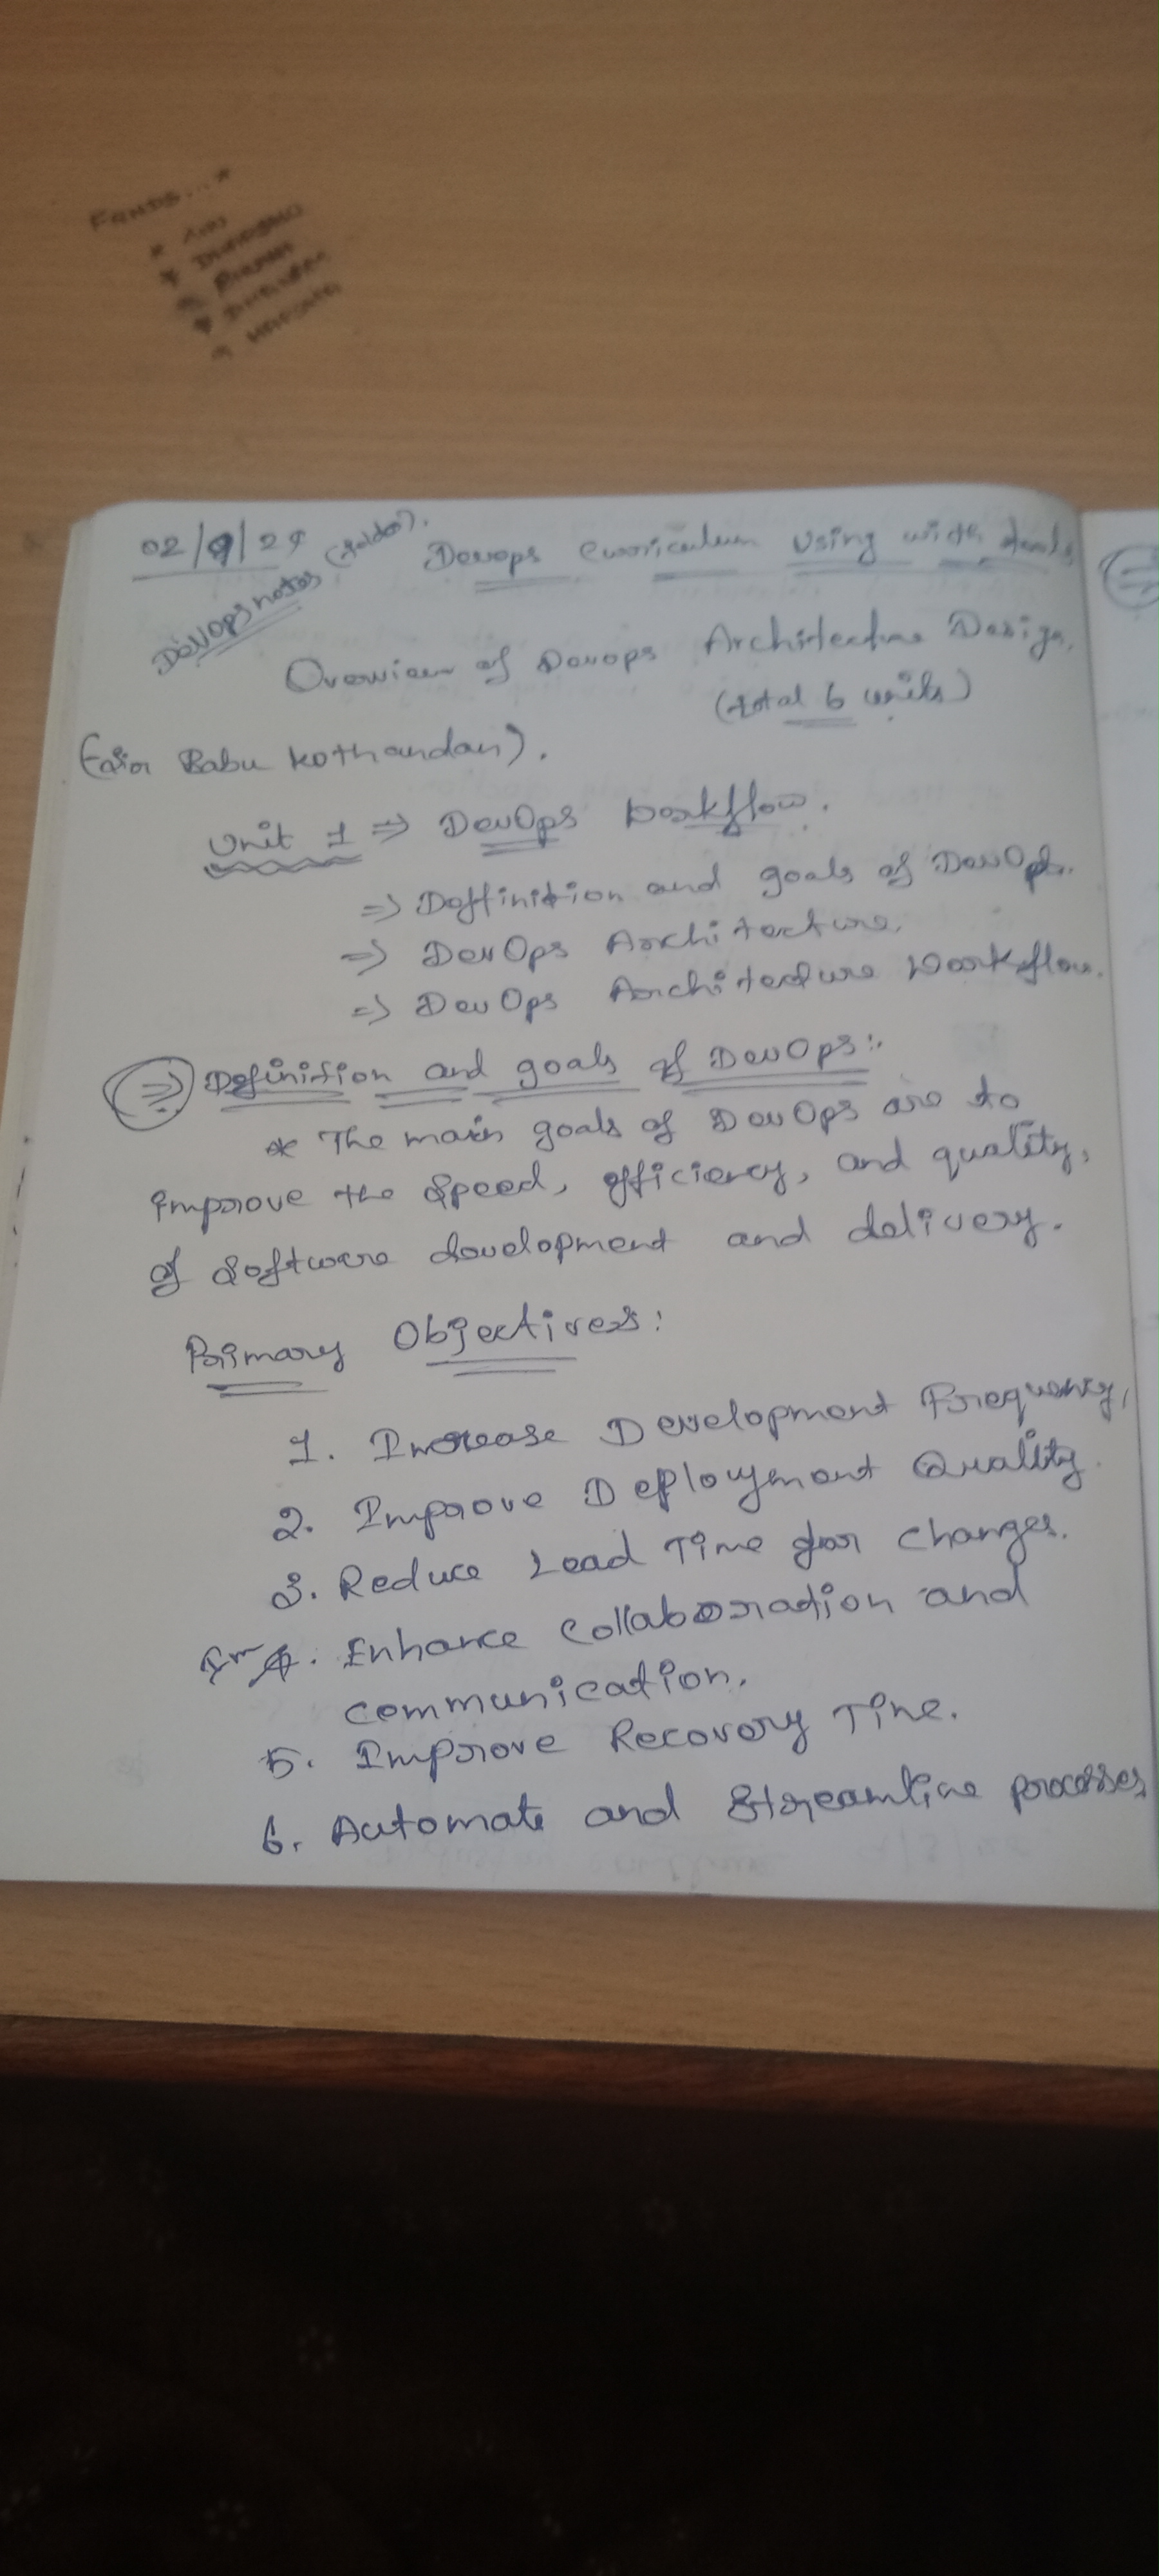 02/9/24
DevOps notes (folder).
Devops Curriculum Using with tools
Overview of Devops Architecture Design.
(total 6 units)
Babu Kothandan).
Unit 1 => DevOps Workflow.
=> Deffinition and goals of DevOps.
=> DevOps Architecture.
=> DevOps Architecture Workflow.
=> Definition and goals of DevOps:
* The main goals of DevOps are to
improve the speed, efficiency, and quality,
of software development and delivery.
Primary Objectives:
1. Increase Development Frequency,
2. Improve Deployment Quality
3. Reduce Lead Time for changes.
Im 4. Enhance collaboration and
communication.
5. Improve Recovery Time.
6. Automate and Streamline processes